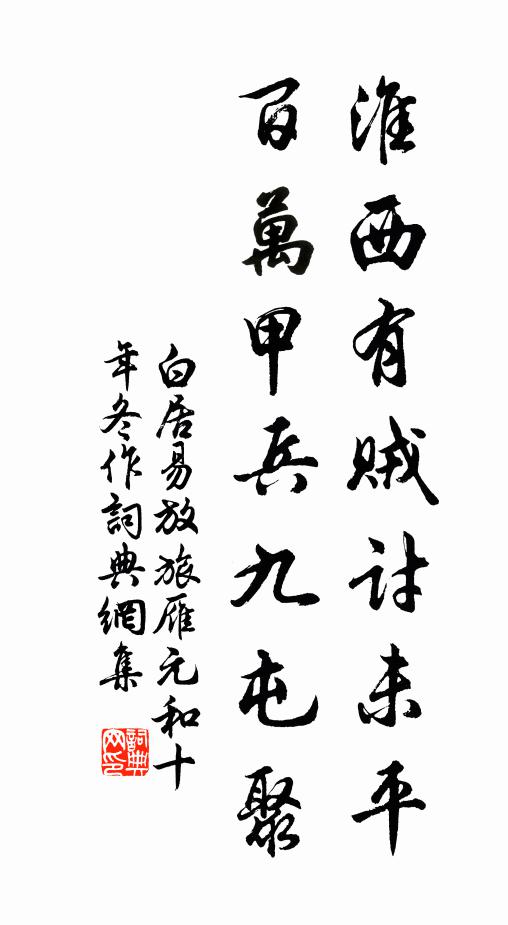 淮西有賊討未平
百萬甲兵久屯聚
白居易放旅雁元和十
年冬作詞典網集
詞典
网印